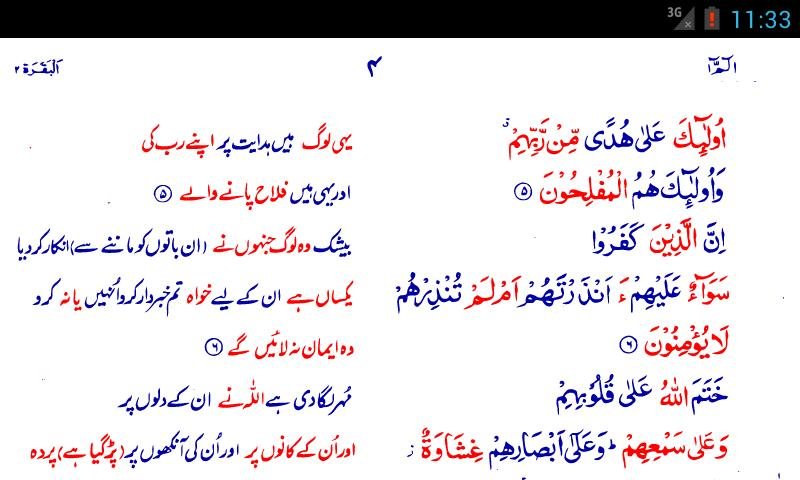 3G 11:33
الٓمّٓ ۴ اَلْبَقَرَة ۲
اُولٰٓئِكَ عَلٰى هُدًى مِّنْ رَّبِّهِمْ ۙ یہی لوگ ہیں ہدایت پر اپنے رب کی
وَاُولٰٓئِكَ هُمُ الْمُفْلِحُوْنَ ۵ اور یہی ہیں فلاح پانے والے ۵
اِنَّ الَّذِيْنَ كَفَرُوْا بیشک وہ لوگ جنہوں نے (ان باتوں کو ماننے سے) انکار کر دیا
سَوَآءٌ عَلَيْهِمْ ءَ اَنْذَرْتَهُمْ اَمْ لَمْ تُنْذِرْهُمْ یکساں ہے ان کے لیے خواہ تم خبردار کرو اُنہیں یا نہ کرو
لَا يُؤْمِنُوْنَ ۶ وہ ایمان نہ لائیں گے ۶
خَتَمَ اللّٰهُ عَلٰى قُلُوْبِهِمْ مُہر لگا دی ہے اللّٰہ نے ان کے دلوں پر
وَعَلٰى سَمْعِهِمْ ؕ وَعَلٰٓى اَبْصَارِهِمْ غِشَاوَةٌ ز اور اُن کے کانوں پر اور اُن کی آنکھوں پر (پڑ گیا ہے) پردہ